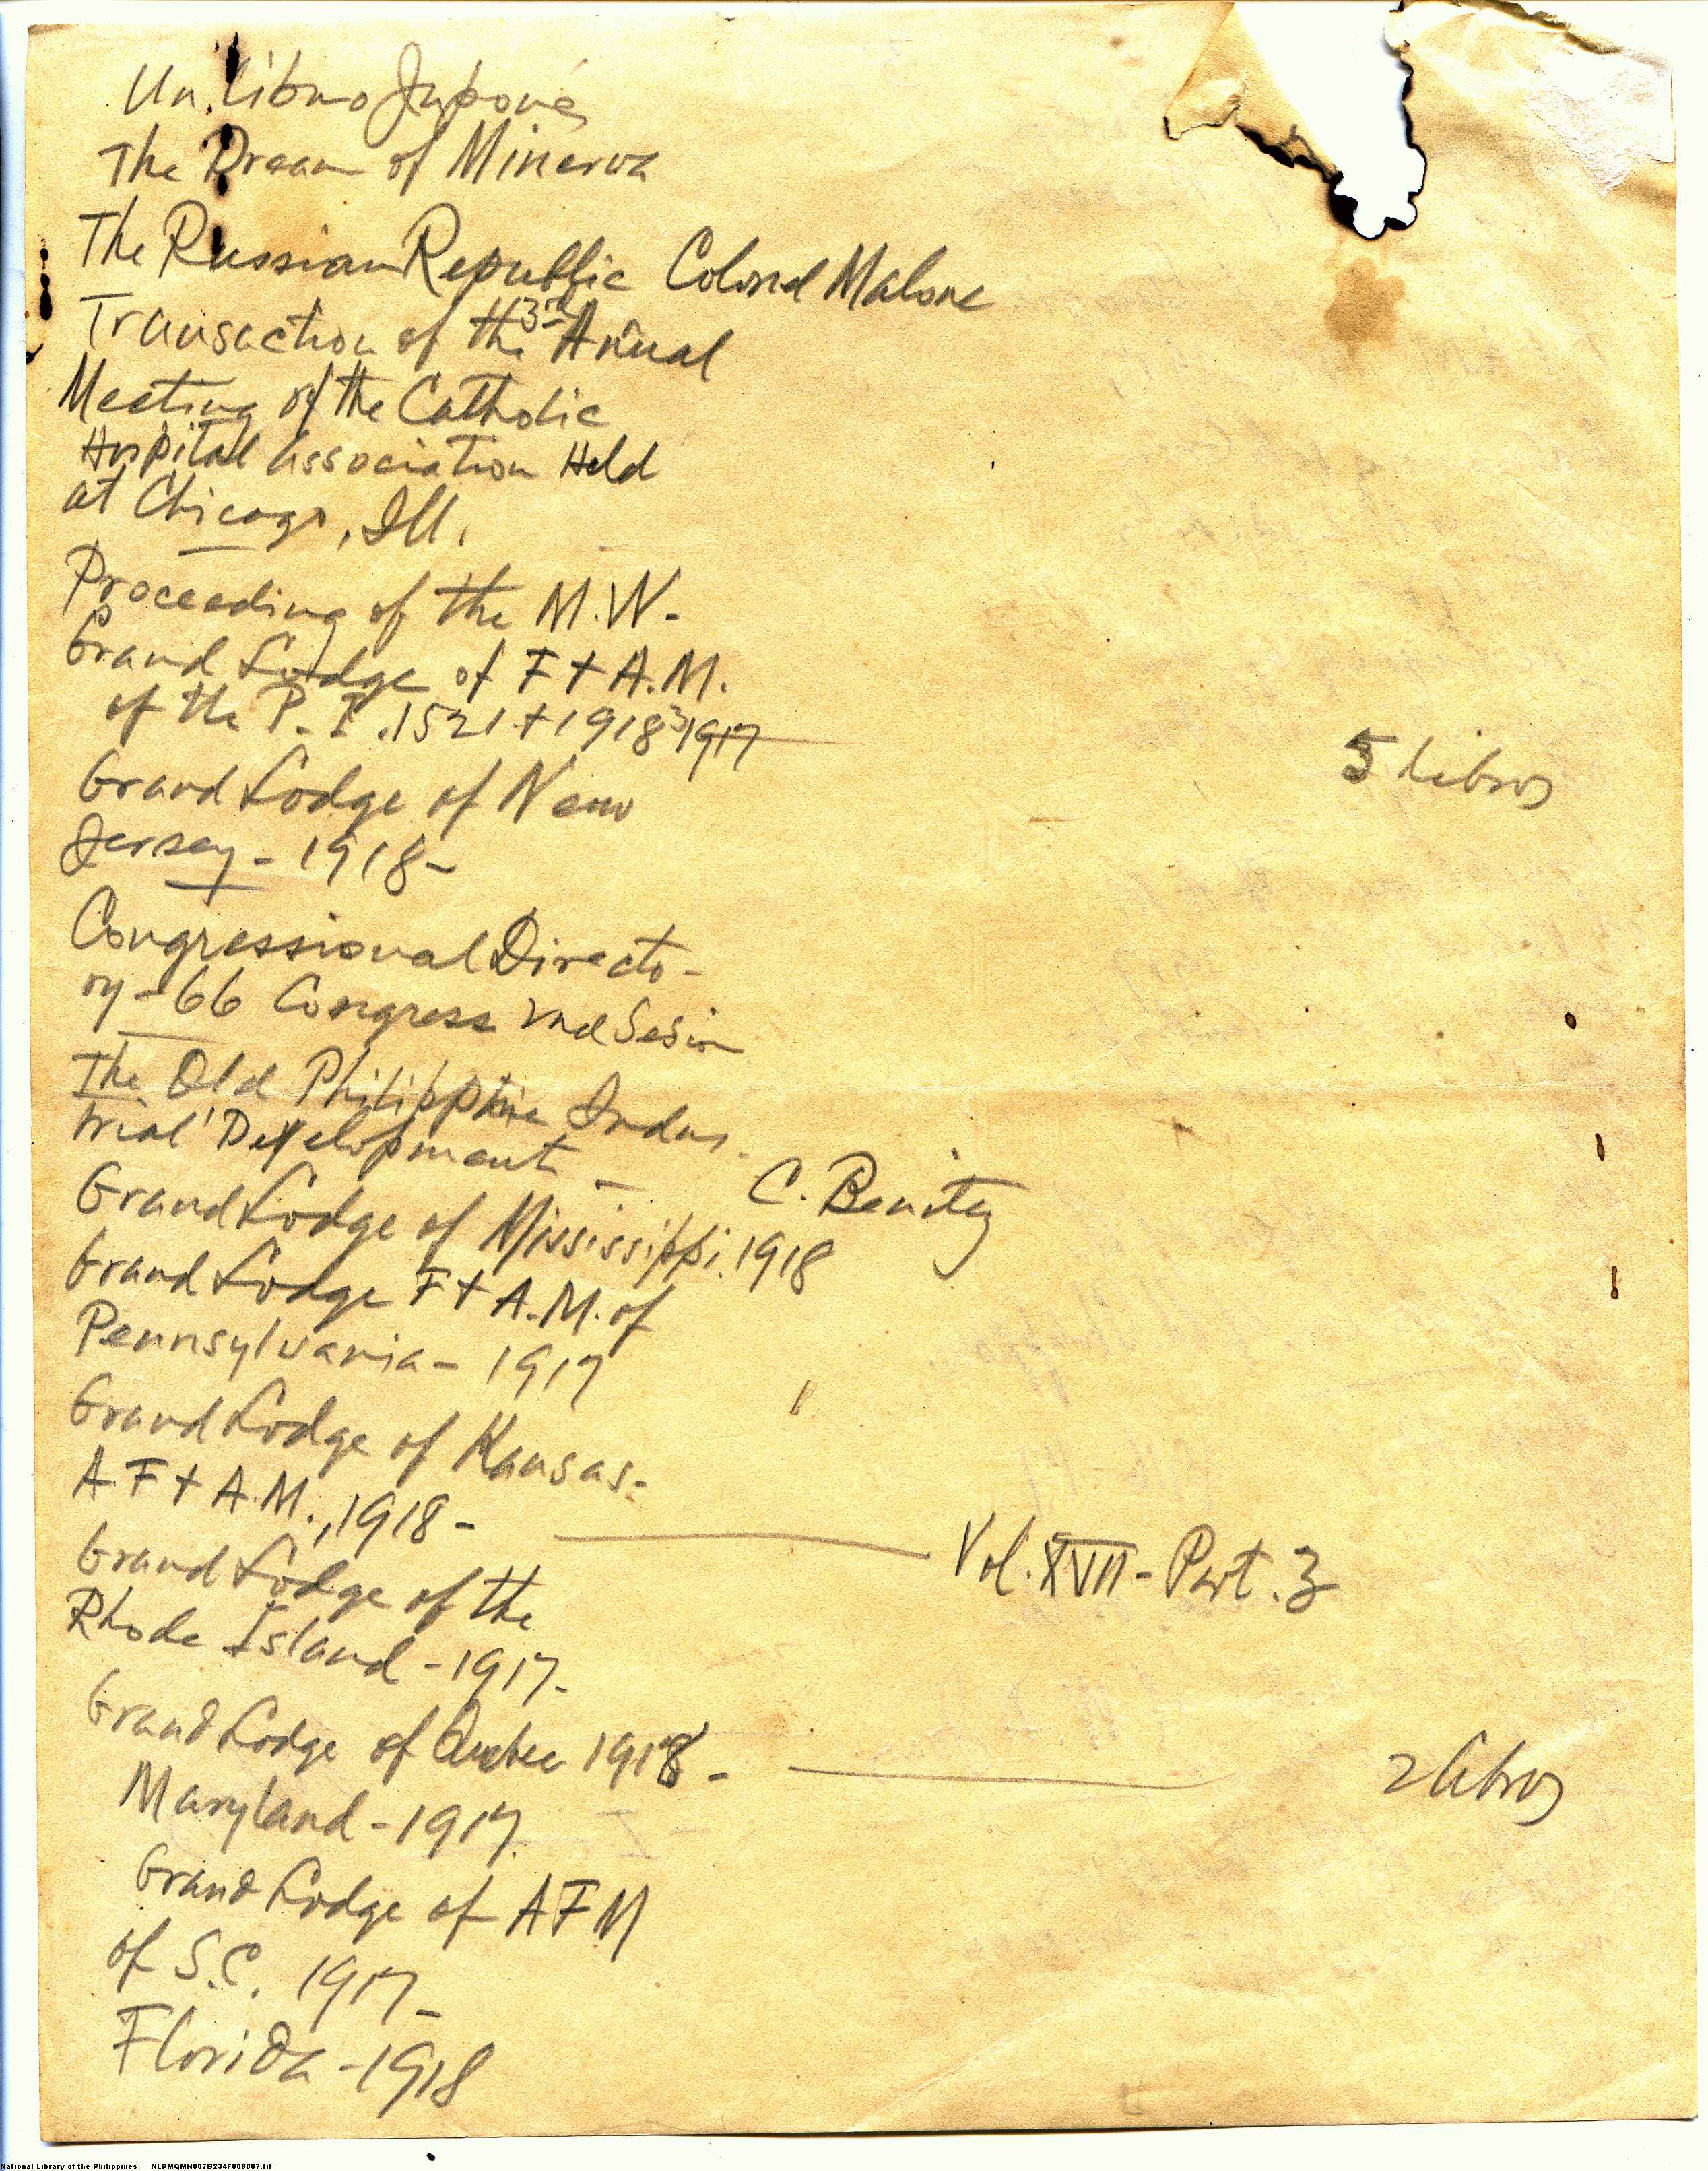 Un libro Japonés
The Dream of Minerva
The Russian Republic Colonel Malone
Transaction of the 3rd Anual
Meeting of the Catholic
Hospital Association Held
at Chicago, Ill.
Proceeding of the M.W.
Grand Lodge of F + A.M.
of the P.I. 1521 + 1918 3 1917 5 libros
Grand Lodge of New
Jersey - 1918 -
Congressional Directo-
ry - 66 Congress 2nd Sesion
The Old Philippine Indus-
trial Development - C. Benitez
Grand Lodge of Mississippi. 1918
Grand Lodge F + A.M. of
Pennsylvania - 1917
Grand Lodge of Kansas.
A F + A.M., 1918 - Vol. XVII - Part. 3
Grand Lodge of the
Rhode Island - 1917.
Grand Lodge of Quebec 1918 - 2 libros
Maryland - 1917.
Grand Lodge of A F M
of S.C. 1917 -
Florida - 1918
National Library of the Philippines NLPMQMN007B234F008007.tif